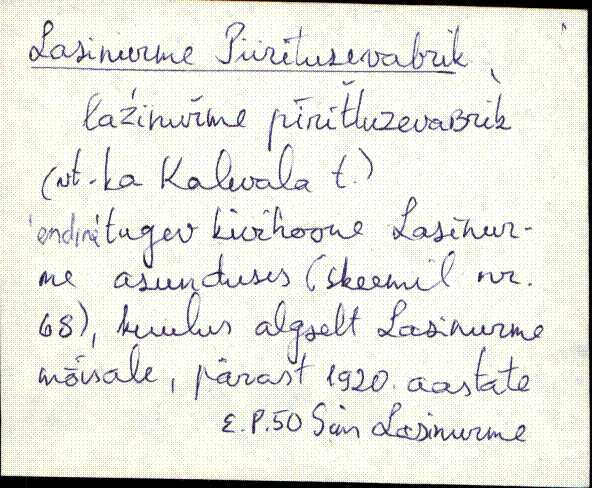 Lasinurme Piiritusevabrik
lažinuřme pīrit̆t̆uzevaʙrik
(vt. ka Kalevala t.)
'endine' tugev kivihoone Lasinur-
me asunduses (skeemil nr.
68), kuulus algselt Lasinurme
mõisale, pärast 1920. aastate
E.P.50 Sim Lasinurme